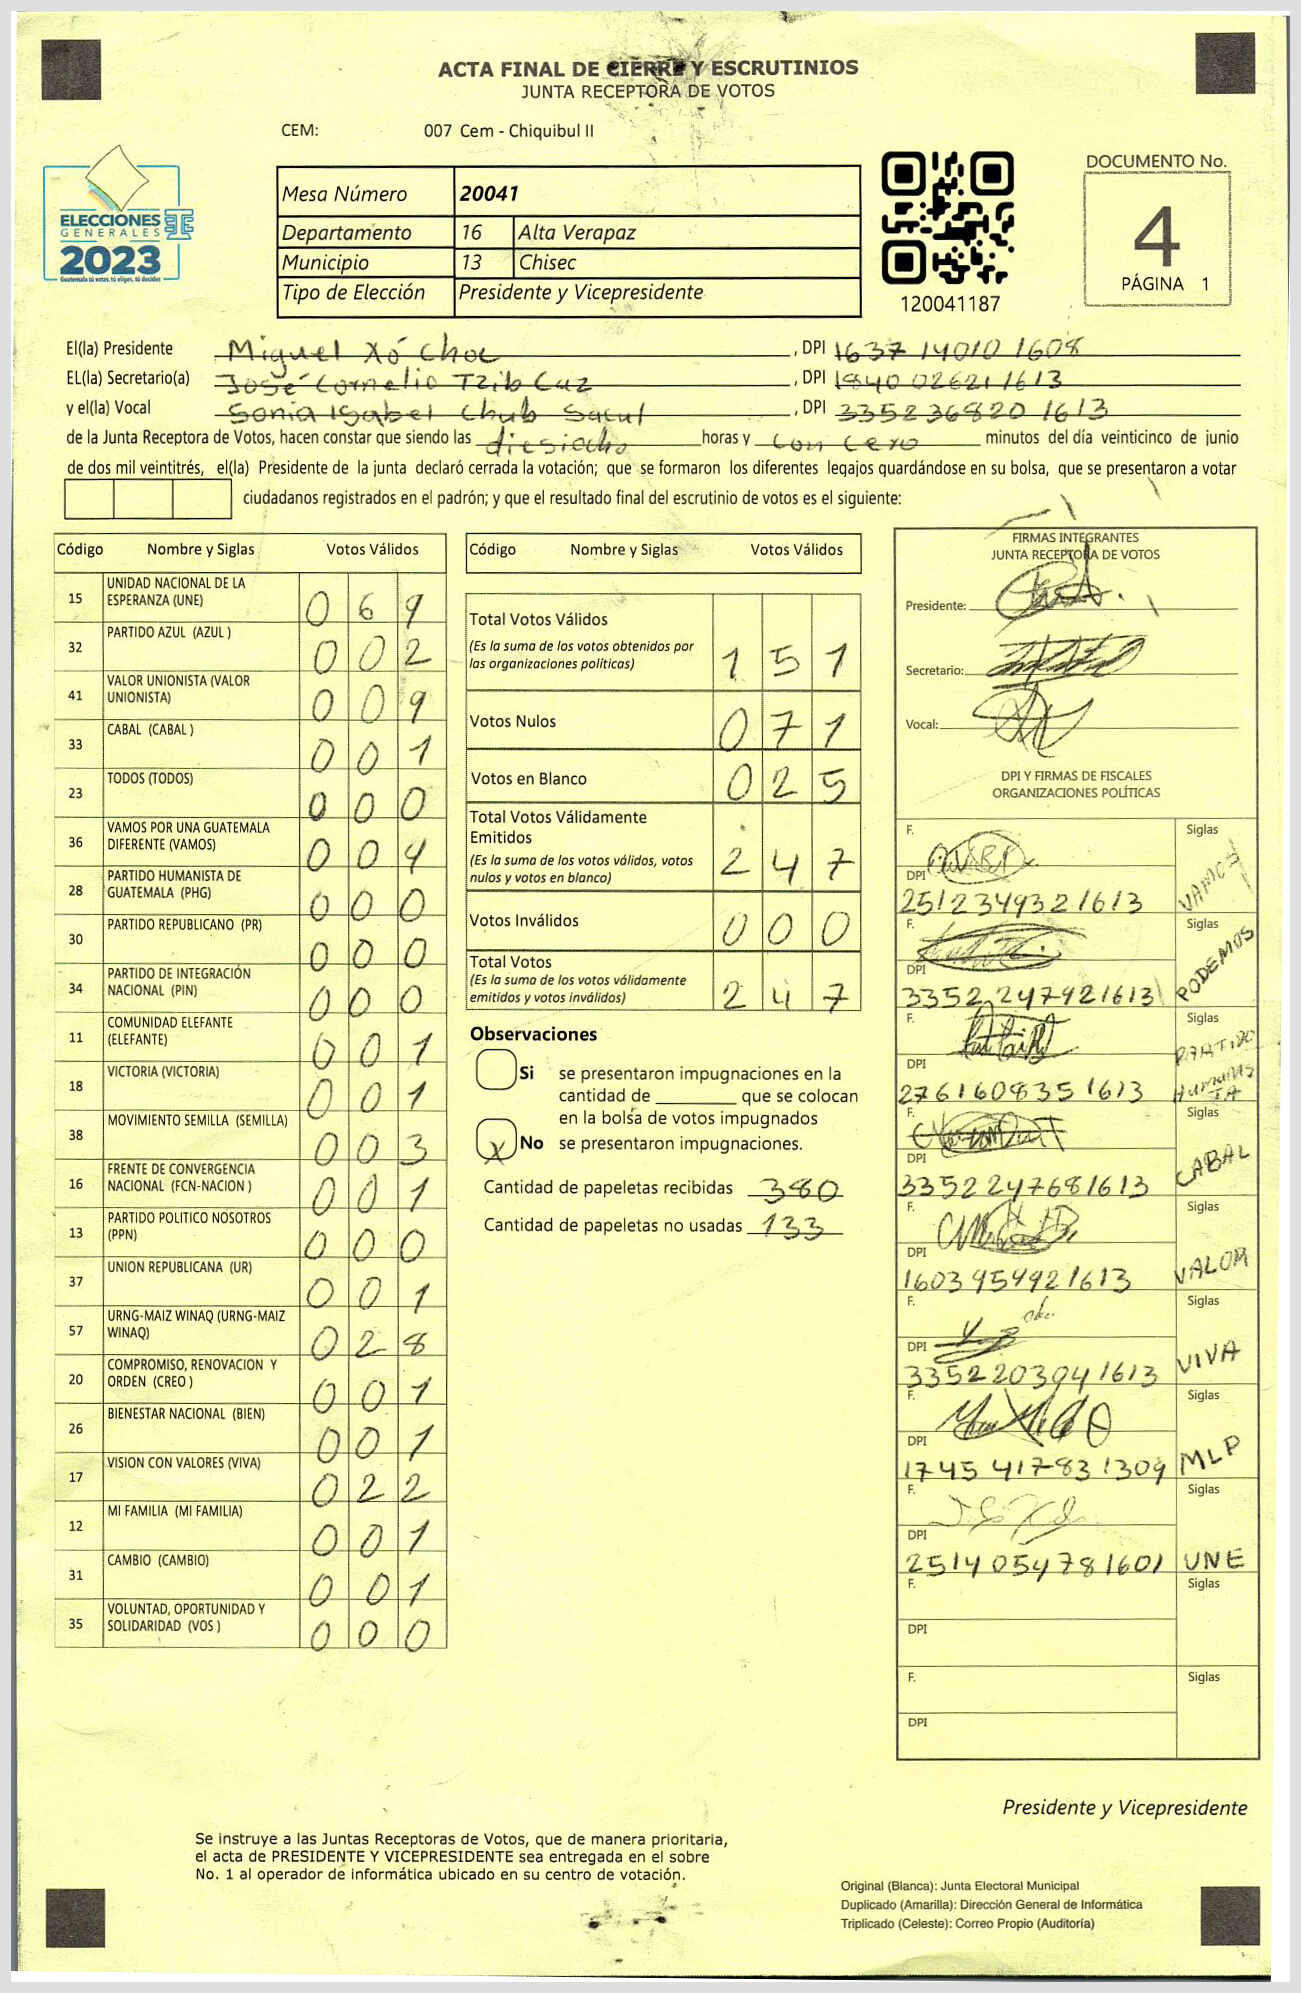 ACTA FINAL DE CIERRE Y ESCRUTINIOS
JUNTA RECEPTORA DE VOTOS
CEM: 007 Cem - Chiquibul II
ELECCIONES
GENERALES
2023
Guatemala tú votas, tú eliges, tú decides
Mesa Número 20041
Departamento 16 Alta Verapaz
Municipio 13 Chisec
Tipo de Elección Presidente y Vicepresidente
120041187
DOCUMENTO No.
4
PÁGINA 1
El(la) Presidente Miguel Xó Choc, DPI 1637 14010 1608
EL(la) Secretario(a) José Cornelio Tzib Caz, DPI 1840 02621 1613
y el(la) Vocal Sonia Isabel Chub Sacul, DPI 335236820 1613
de la Junta Receptora de Votos, hacen constar que siendo las diesiocho horas y con cero minutos del día veinticinco de junio
de dos mil veintitrés, el(la) Presidente de la junta declaró cerrada la votación; que se formaron los diferentes legajos guardándose en su bolsa, que se presentaron a votar
ciudadanos registrados en el padrón; y que el resultado final del escrutinio de votos es el siguiente:
Código Nombre y Siglas Votos Válidos
15 UNIDAD NACIONAL DE LA ESPERANZA (UNE) 0 6 9
32 PARTIDO AZUL (AZUL ) 0 0 2
41 VALOR UNIONISTA (VALOR UNIONISTA) 0 0 9
33 CABAL (CABAL ) 0 0 1
23 TODOS (TODOS) 0 0 0
36 VAMOS POR UNA GUATEMALA DIFERENTE (VAMOS) 0 0 9
28 PARTIDO HUMANISTA DE GUATEMALA (PHG) 0 0 0
30 PARTIDO REPUBLICANO (PR) 0 0 0
34 PARTIDO DE INTEGRACIÓN NACIONAL (PIN) 0 0 0
11 COMUNIDAD ELEFANTE (ELEFANTE) 0 0 1
18 VICTORIA (VICTORIA) 0 0 1
38 MOVIMIENTO SEMILLA (SEMILLA) 0 0 3
16 FRENTE DE CONVERGENCIA NACIONAL (FCN-NACION ) 0 0 1
13 PARTIDO POLITICO NOSOTROS (PPN) 0 0 0
37 UNION REPUBLICANA (UR) 0 0 1
57 URNG-MAIZ WINAQ (URNG-MAIZ WINAQ) 0 2 8
20 COMPROMISO, RENOVACION Y ORDEN (CREO ) 0 0 1
26 BIENESTAR NACIONAL (BIEN) 0 0 1
17 VISION CON VALORES (VIVA) 0 2 2
12 MI FAMILIA (MI FAMILIA) 0 0 1
31 CAMBIO (CAMBIO) 0 0 1
35 VOLUNTAD, OPORTUNIDAD Y SOLIDARIDAD (VOS ) 0 0 0
Código Nombre y Siglas Votos Válidos
Total Votos Válidos 1 5 1
(Es la suma de los votos obtenidos por
las organizaciones políticas)
Votos Nulos 0 7 1
Votos en Blanco 0 2 5
Total Votos Válidamente
Emitidos 2 4 7
(Es la suma de los votos válidos, votos
nulos y votos en blanco)
Votos Inválidos 0 0 0
Total Votos 2 4 7
(Es la suma de los votos válidamente
emitidos y votos inválidos)
Observaciones
Si se presentaron impugnaciones en la
cantidad de ________ que se colocan
en la bolsa de votos impugnados
X No se presentaron impugnaciones.
Cantidad de papeletas recibidas 380
Cantidad de papeletas no usadas 133
FIRMAS INTEGRANTES
JUNTA RECEPTORA DE VOTOS
Presidente:
Secretario:
Vocal:
DPI Y FIRMAS DE FISCALES
ORGANIZACIONES POLÍTICAS
F. Siglas
DPI 2512349321613 VAMOS
F. Siglas
DPI 3352247921613 PODEMOS
F. Siglas
DPI 2761608351613 PARTIDO HUMANISTA
F. Siglas
DPI 3352247681613 CABAL
F. Siglas
DPI 1603959921613 VALOR
F. Siglas
DPI 3352203041613 VIVA
F. Siglas
DPI 1745 41783 1309 MLP
F. Siglas
DPI 2514054781601 UNE
F. Siglas
DPI
F. Siglas
DPI
Presidente y Vicepresidente
Se instruye a las Juntas Receptoras de Votos, que de manera prioritaria,
el acta de PRESIDENTE Y VICEPRESIDENTE sea entregada en el sobre
No. 1 al operador de informática ubicado en su centro de votación.
Original (Blanca): Junta Electoral Municipal
Duplicado (Amarilla): Dirección General de Informática
Triplicado (Celeste): Correo Propio (Auditoría)